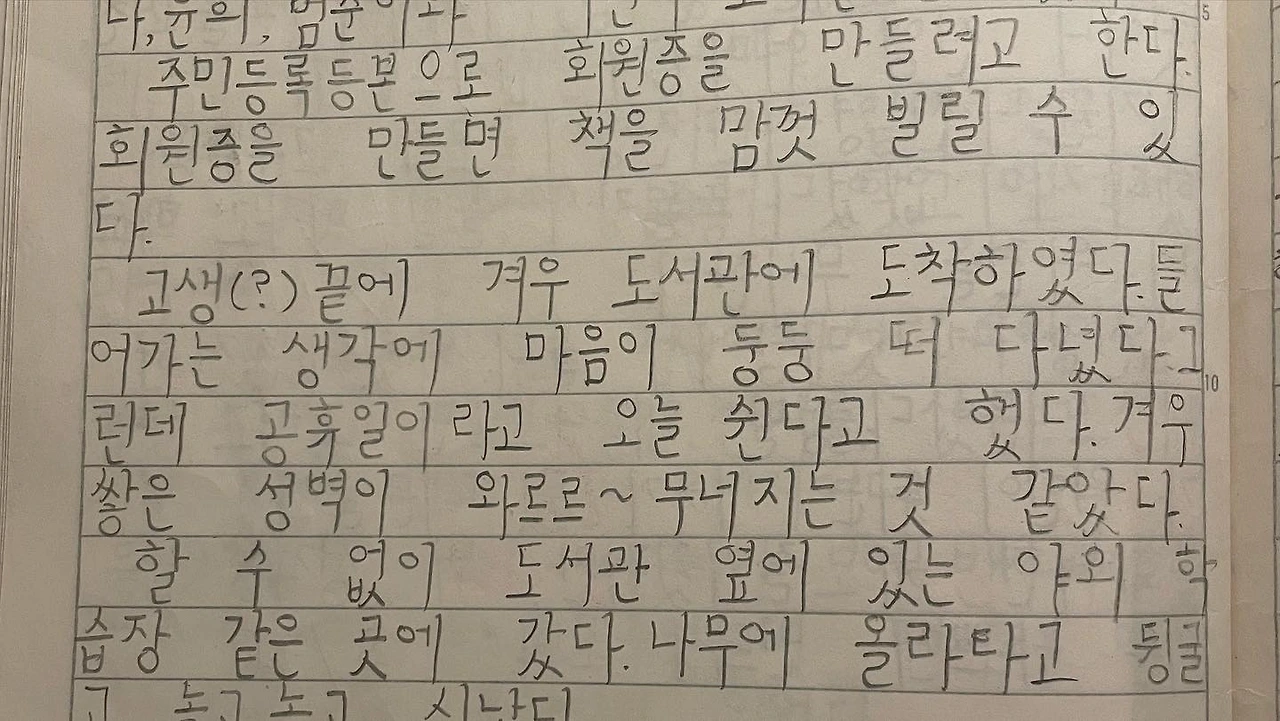 나, 윤의, 범준이와
주민등록등본으로 회원증을 만들려고 한다.
회원증을 만들면 책을 맘껏 빌릴 수 있
다.
고생(?)끝에 겨우 도서관에 도착하였다.들
어가는 생각에 마음이 둥둥 떠 다녔다.그
런데 공휴일이라고 오늘 쉰다고 했다.겨우
쌓은 성벽이 와르르~무너지는 것 같았다.
할 수 없이 도서관 옆에 있는 야외 학
습장 같은 곳에 갔다.나무에 올라타고 뒹굴
고 놀고놀고 시난디
5
10